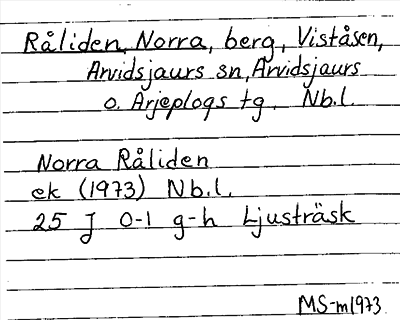 Råliden, Norra, berg, Viståsen,
Arvidsjaurs sn, Arvidsjaurs
o. Arjeplogs tg. Nb.l.
Norra Råliden
ek (1973) Nb.l.
25 J 0-1 g-h Ljusträsk
MS-m1973